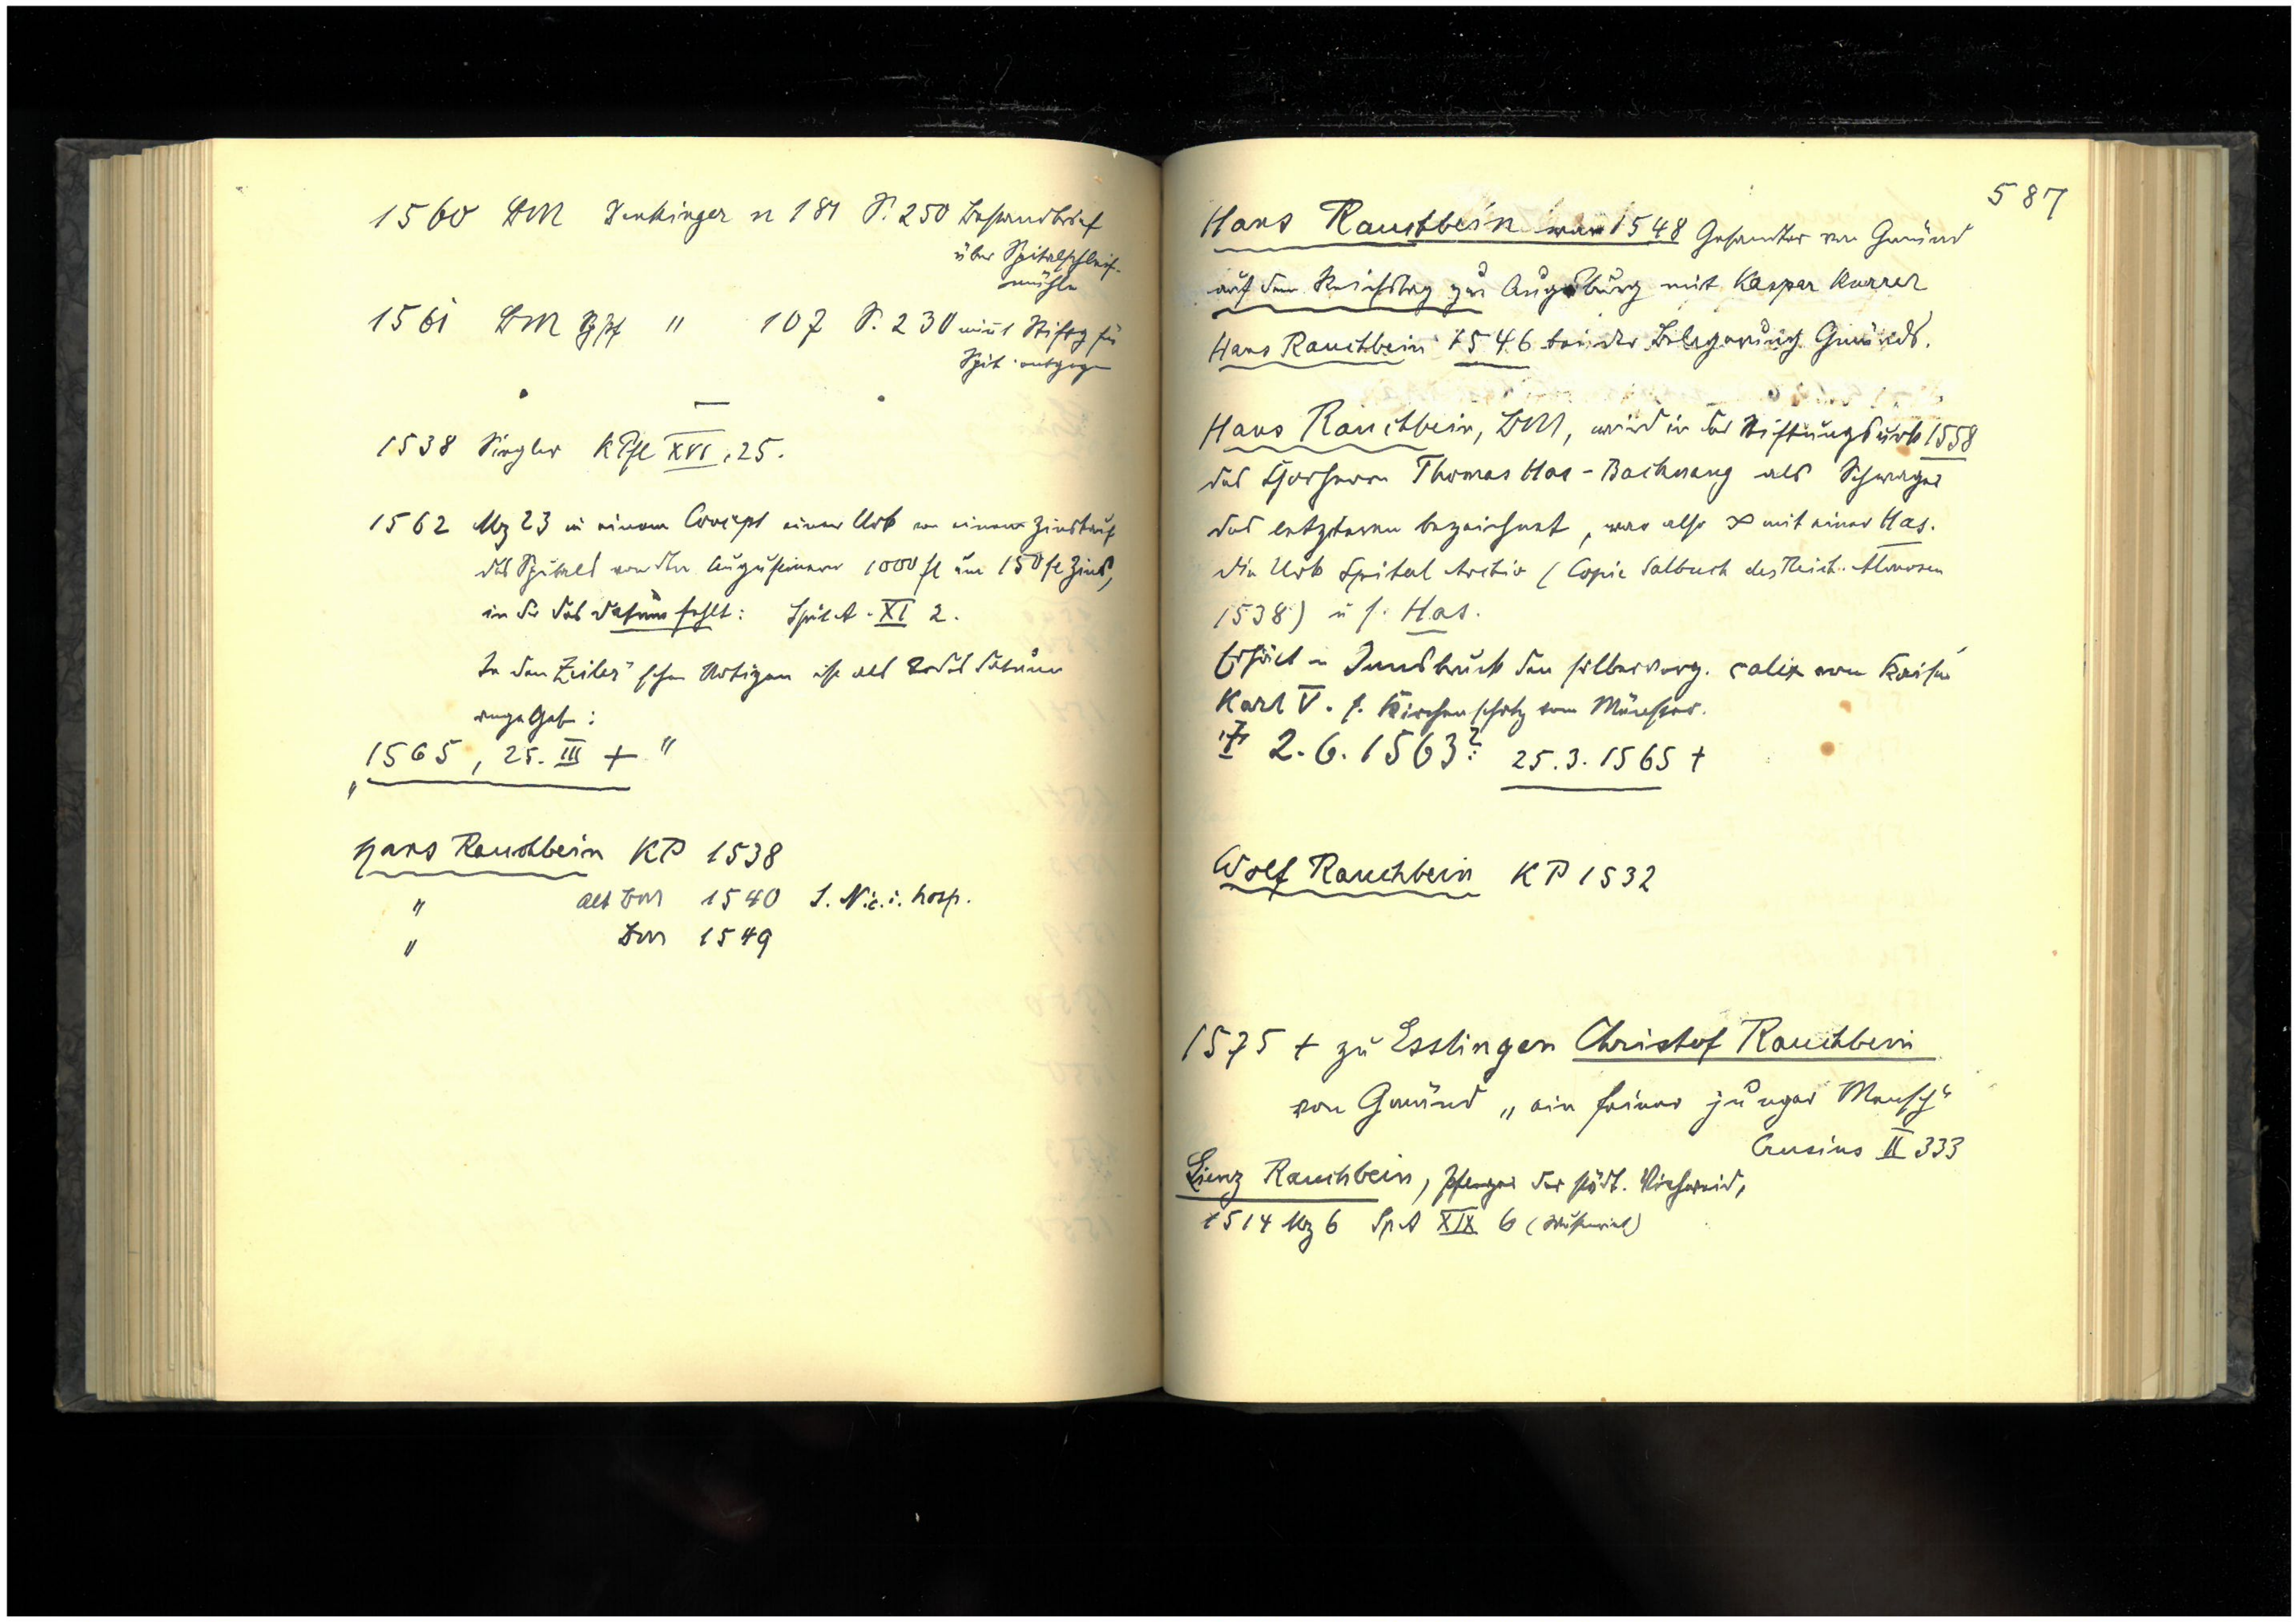 1560 BM Denkinger n 181 S. 250 Bestandbrief
über Spitalschleif-
mühle
1561 BM " 107 S. 230 nimt Stiftg für
Spit. entgegen
1538 Siegler KPfl XVI, 25.
1562 Mz 23 in einem Concept einer Urk von einem Zinskauf
des Spitals von den Augustinern 1000 fl um 150 fl Zins,
in der das Datum fehlt: SpitA. XI 2.
In den Zeiler'schen Notizen ist als Todesdatum
angegeb:
„1565, 25. III +"
Hans Rauchbein KP 1538
" alt BM 1540 S. Nic. i. hosp.
" BM 1549
587
Hans Rauchbein war 1548 Gesandter von Gmünd
auf dem Reichstag zu Augsburg mit Kaspar Kurrer
Hans Rauchbein 1546 bei der Belagerung Gmünds.
Hans Rauchbein, BM, wird in der Stiftungsurk 1558
des Chorherrn Thomas Has - Backnang als Schwager
des letzteren bezeichnet, war also ∞ mit einer Has.
Die Urk Spital Archiv (Copie Salbuch des Reich. Almosen
1538) u s. Has.
Erhielt in Innsbruck den silberverg. calix von Kaiser
Karl V. s. Kirchenschatz vom Münster.
+ 2.6.1563? 25.3.1565 +
Wolf Rauchbein KP 1532
1575 + zu Esslingen Christof Rauchbein
von Gmünd „ein feiner junger Mensch"
Crusius II 333
Lienz Rauchbein, Pfleger der städt. Viehweid,
1514 Mz 6 SpA XIX 6